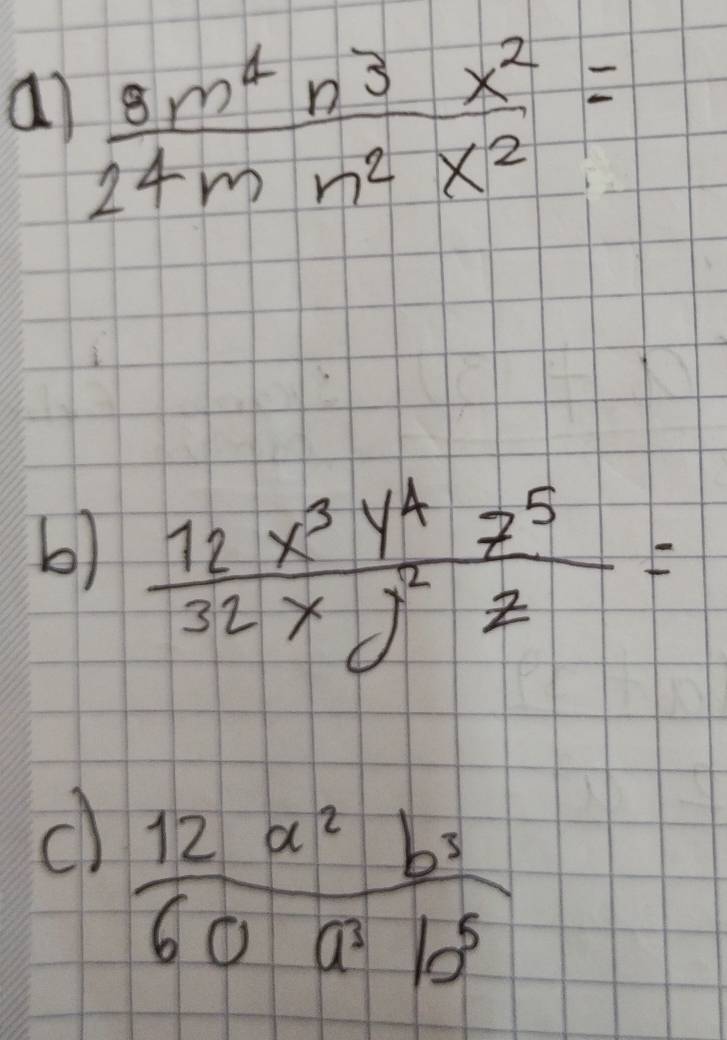 a) 8m⁴ n³ x² =
24m n² x²
b) 12 x³ y⁴ z⁵ =
32 x y² z
c) 12 a² b³
60 a³ b⁵